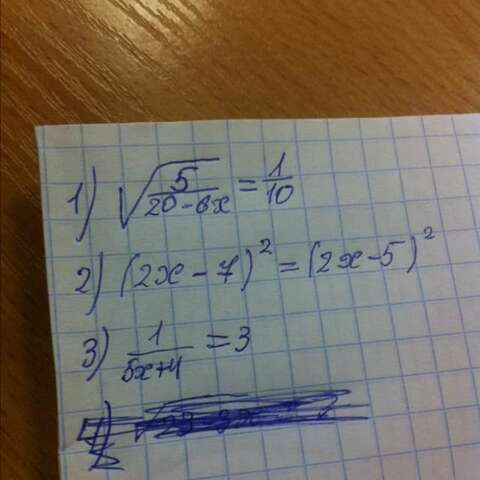 1) √(5/(20-6x)) = 1/10
2) (2x-7)² = (2x-5)²
3) 1/(5x+4) = 3